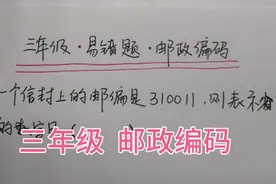 三年级·易错题·邮政编码
一个信封上的邮编是310011,则表示
的
三年级 邮政编码